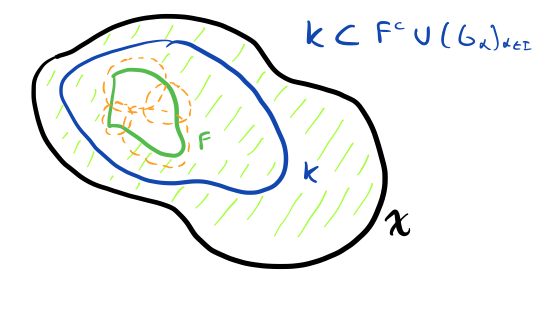 K ⊂ Fᶜ ∪ (G_α)_{α∈I}
F
K
X